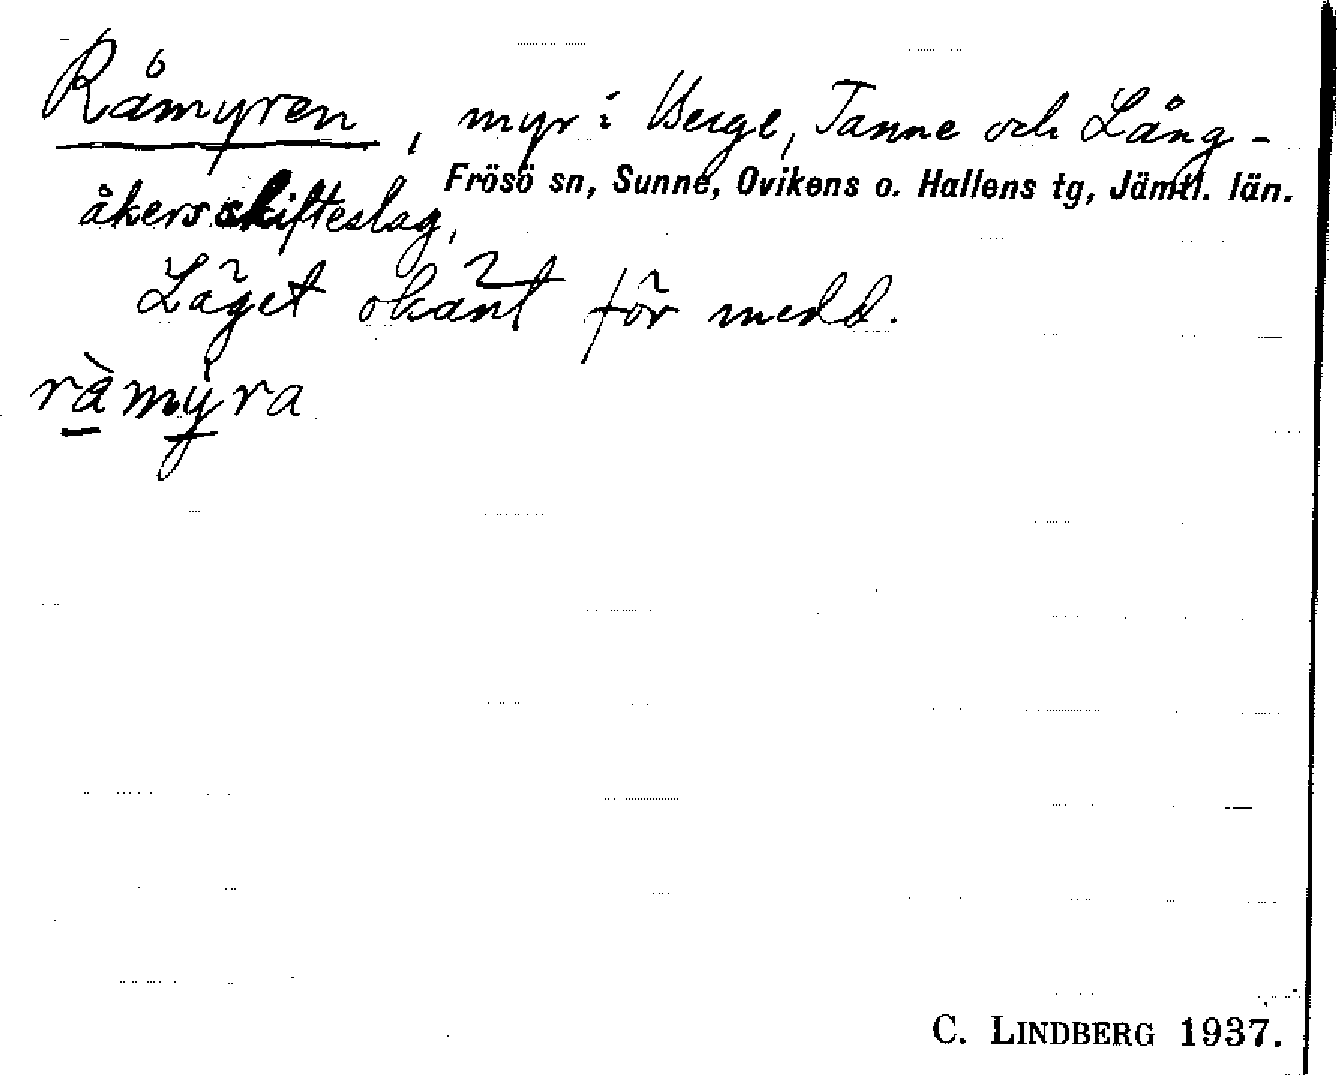 Råmyren, myr i Berge, Tanne och Lång-
Frösö sn, Sunne, Ovikens o. Hallens tg, Jämtl. län.
åkers skifteslag,
Läget okänt för medd.
ràmỳra
C. LINDBERG 1937.